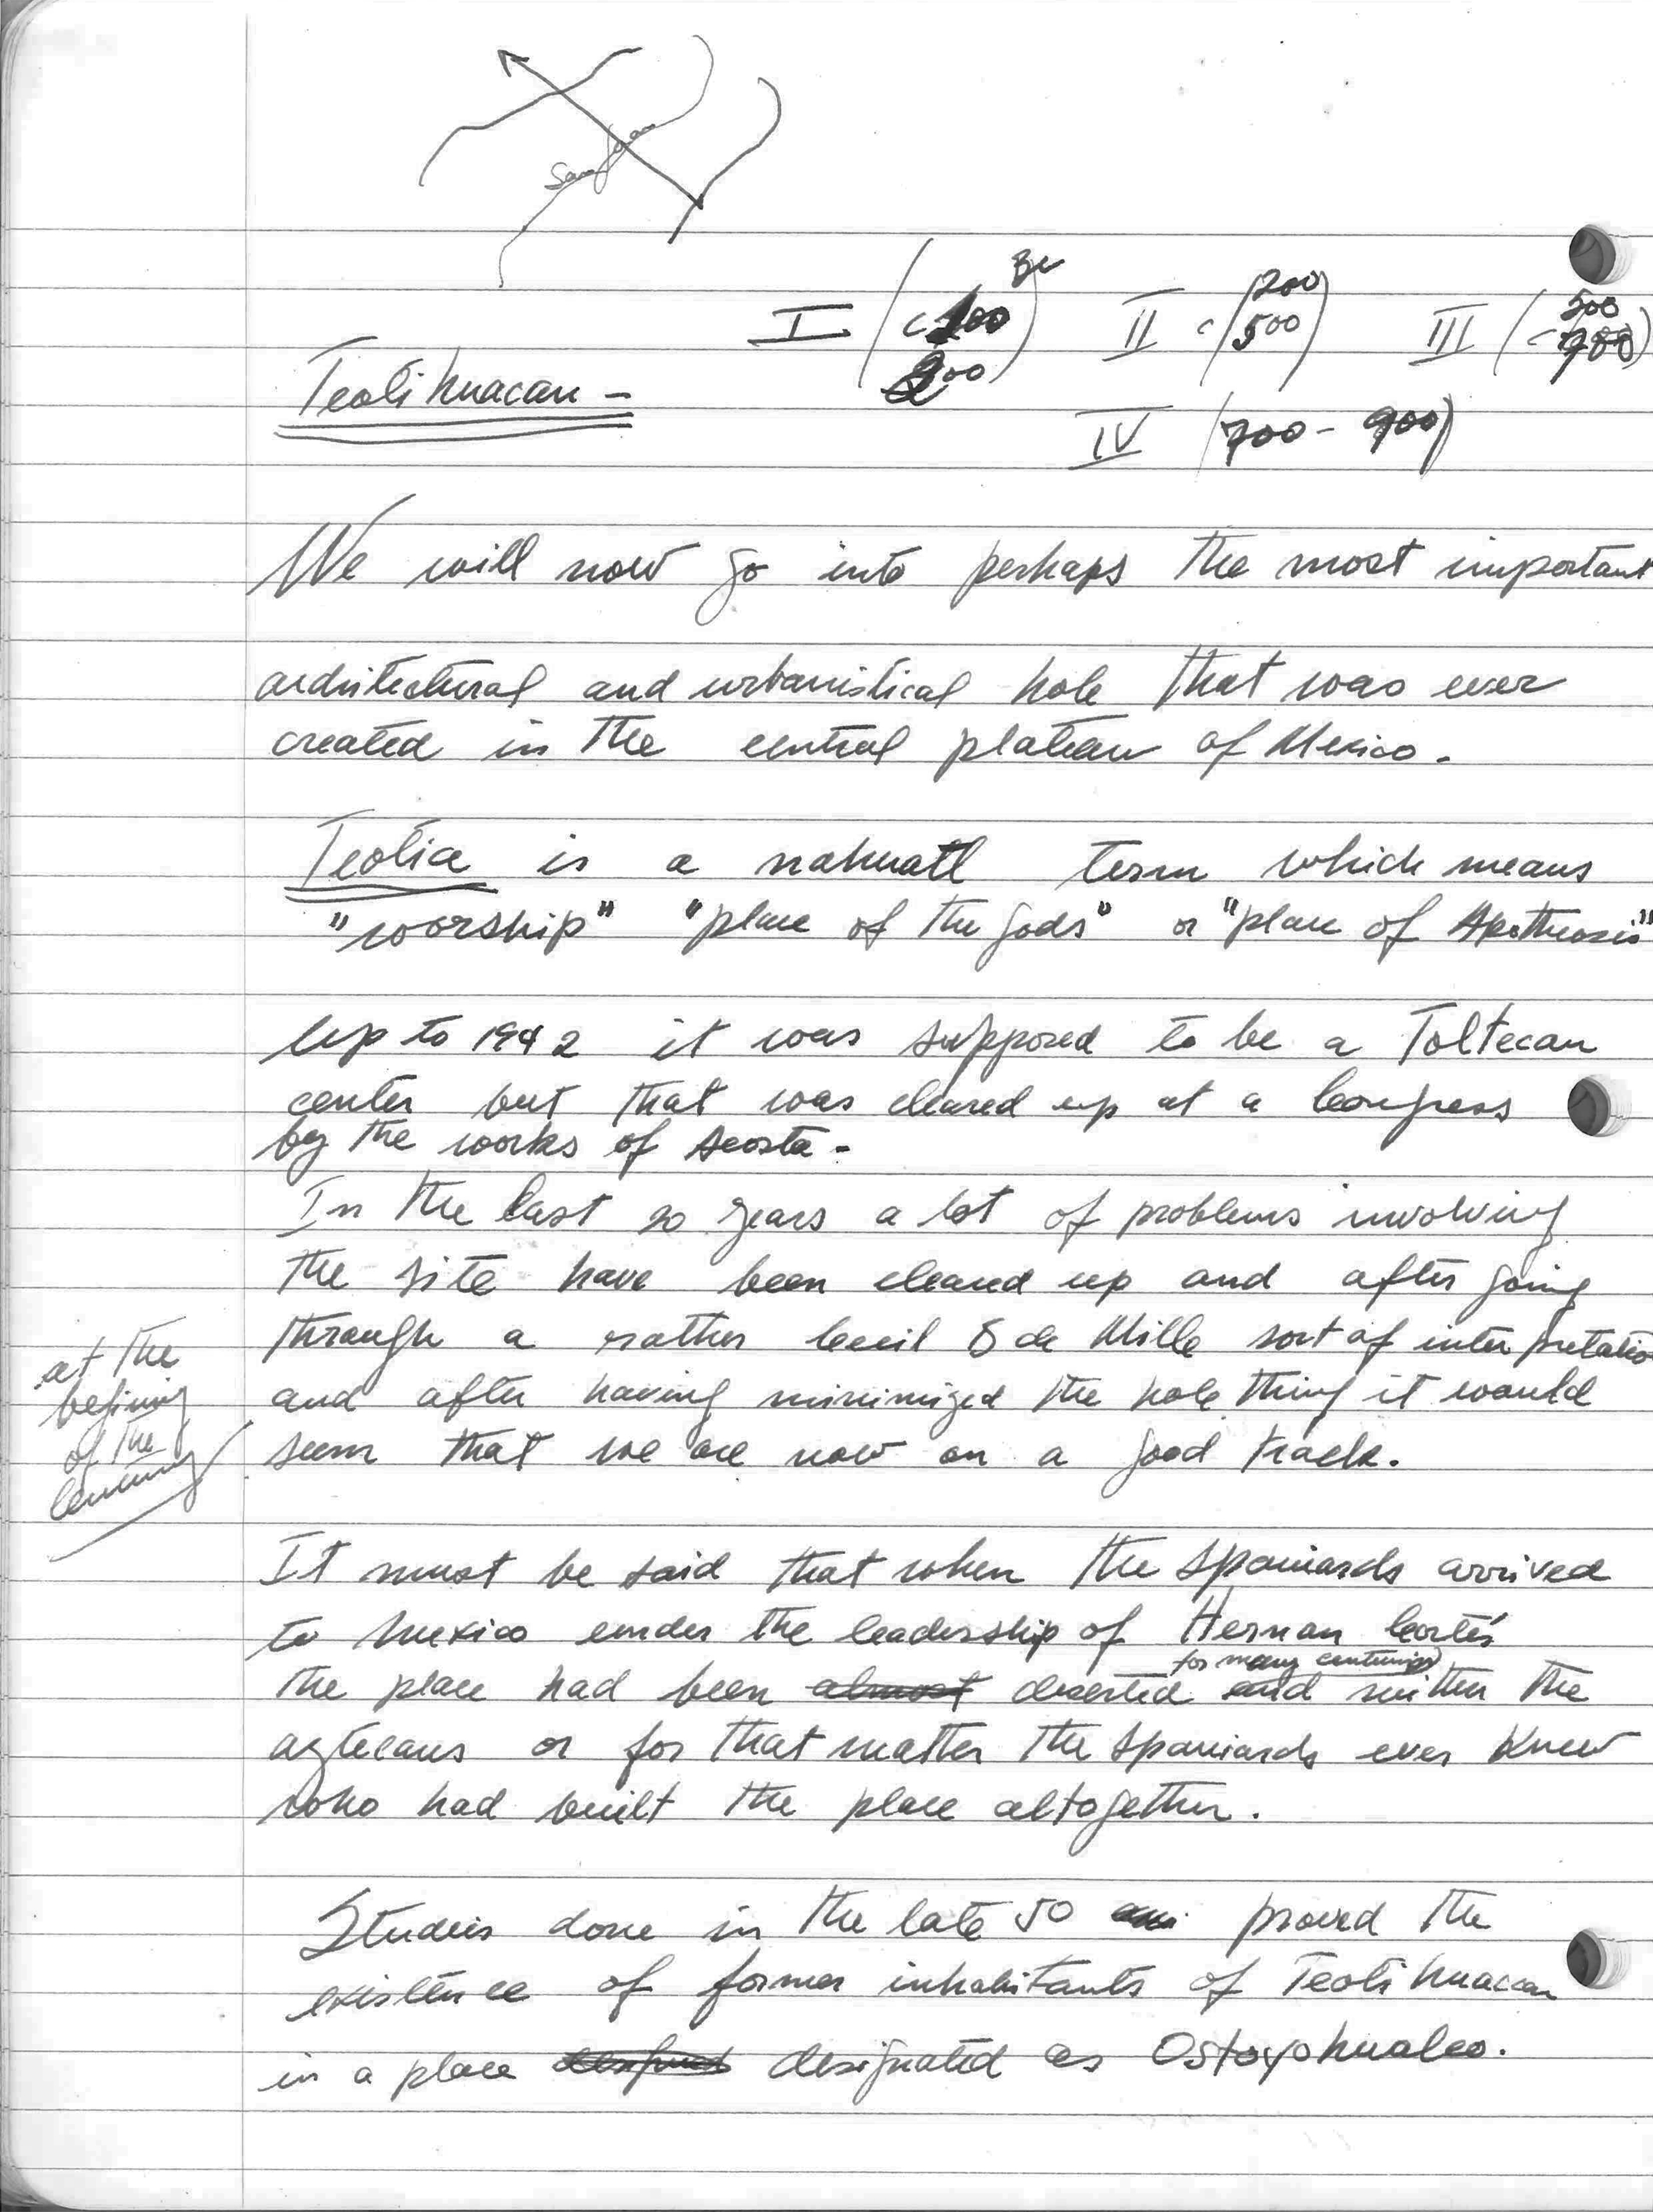 San Juan
BC
I (c 100 II c (200 III (c 500
200) 500) 700)
Teotihuacan -
IV (700 - 900)
We will now go into perhaps the most important
architectural and urbanistical hole that was ever
created in the central plateau of Mexico.
Teotia is a nahuatl term which means
"worship" "place of the gods" or "place of Apotheosis"
Up to 1942 it was supposed to be a Toltecan
center but that was cleared up at a Congress
by the works of Acosta -
In the last 20 years a lot of problems involving
the site have been cleared up and after going
through a rather Cecil B de Mille sort of interpretatio
and after having minimized the hole thing it would
seem that we are now on a good track.
at the
begining
of the
century
It must be said that when the Spaniards arrived
to Mexico under the leadership of Hernan Cortés
for many centuries
the place had been almost deserted and neither the
aztecans or for that matter the Spaniards ever knew
who had built the place altogether.
Studies done in the late 50 proved the
existence of former inhabitants of Teotihuacan
in a place designated as Ostoyohualco.